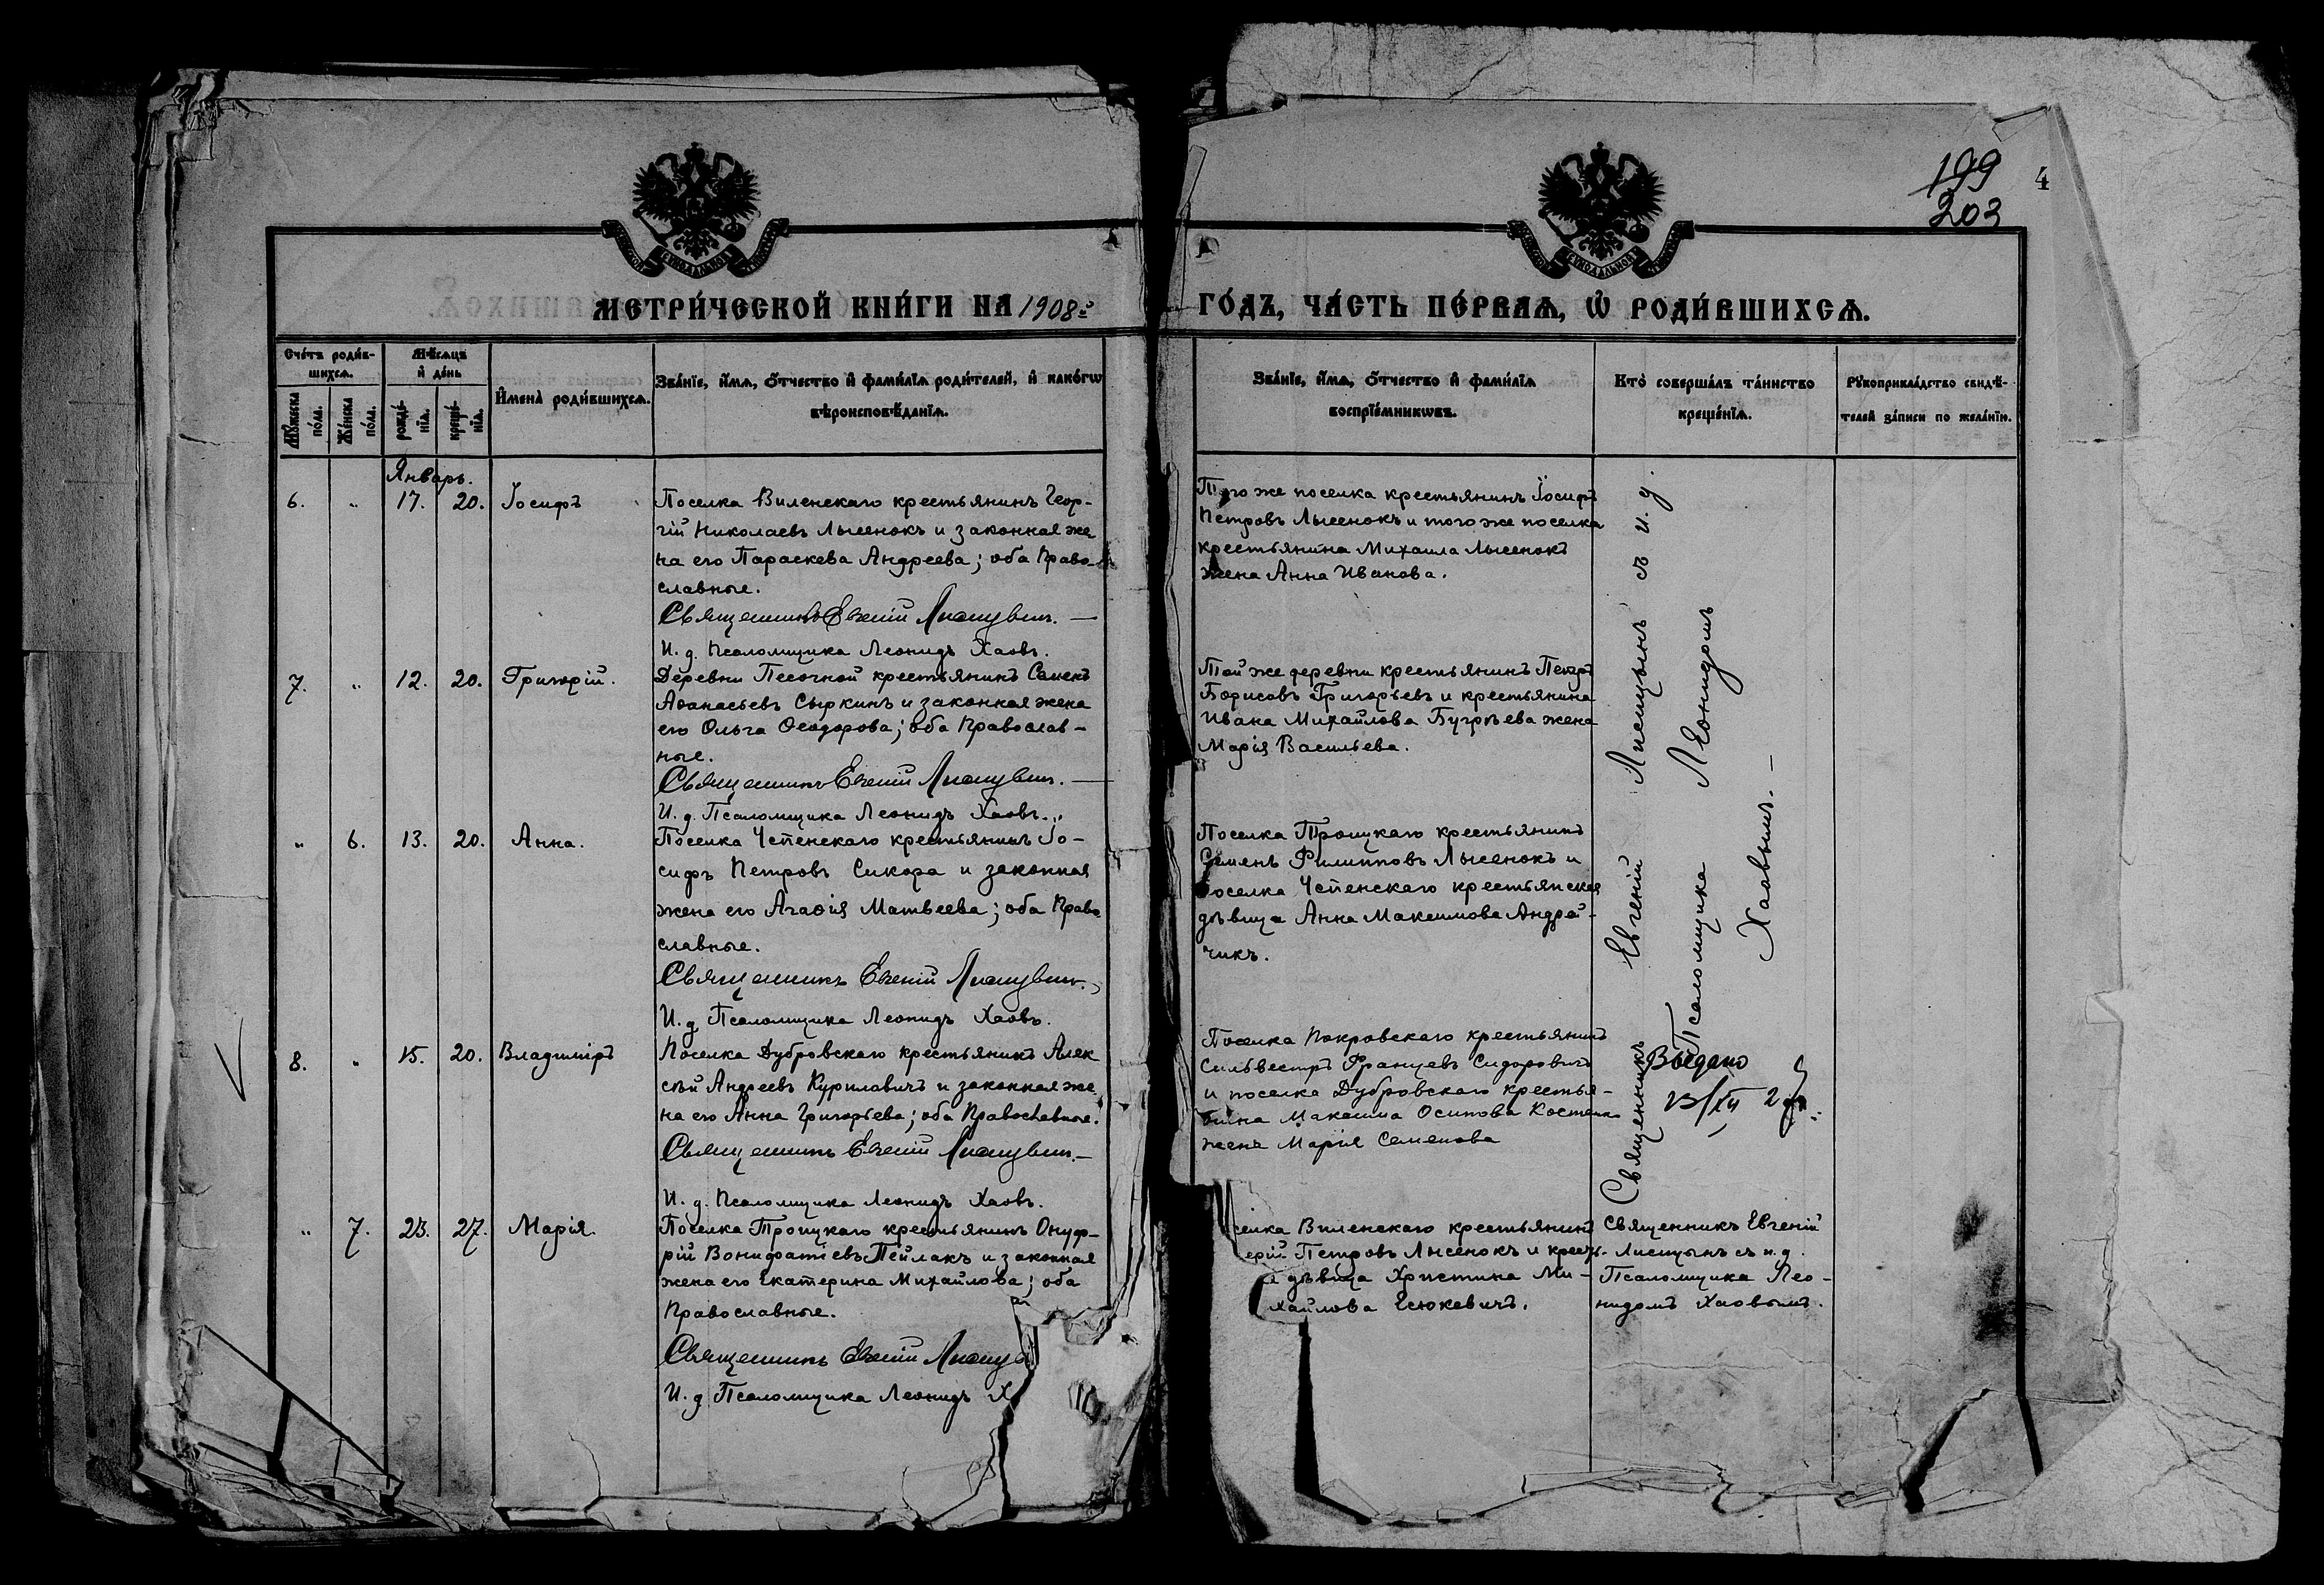 199
203
4
МЕТРИ́ЧЕСКОЙ КНИ́ГИ НА 1908й
ГО́ДЪ, ЧА́СТЬ ПЕ́РВАѦ, Ѡ҆ РОДИ́ВШИХСѦ.
Сче́тъ роди́в-
шихсѧ.
Мѣ́сѧцъ
и҆ де́нь
Мꙋ́жеска
по́ла.
Же́нска
по́ла.
рожде́-
нїѧ.
креще́-
нїѧ.
И҆мена̀ роди́вшихсѧ.
Зва́нїе, и҆́мѧ, ѻ҆́тчество и҆ фами́лїѧ роди́телей, и҆ како́гѡ
вѣроисповѣ́данїѧ.
Зва́нїе, и҆́мѧ, ѻ҆́тчество и҆ фами́лїѧ
воспрїе́мникѡвъ.
Кто̀ соверша́лъ та́инство
креще́нїѧ.
Рꙋкоприкла́дство свидѣ́-
телей за́писи по жела́нїю.
Январь.
6. „ 17. 20. Іосифъ
Поселка Виленскаго крестьянинъ Геор-
гій Николаевъ Лысенокъ и законная же
на его Параскева Андреева; оба Право-
славные.
Священникъ Евгеній Лисицынъ. —
И. д. Псаломщика Леонидъ Хаовъ.
Того же поселка крестьянинъ Іосифъ
Петровъ Лысенокъ и того же поселка
крестьянина Михаила Лысенокъ
жена Анна Иванова.
7. „ 12. 20. Григорій.
Деревни Песочной крестьянинъ Семенъ
Аѳанасьевъ Сыркинъ и законная жена
его Ольга Ѳеодорова; оба Православ-
ные.
Священникъ Евгеній Лисицынъ. —
И. д. Псаломщика Леонидъ Хаовъ.
Той же деревни крестьянинъ Петръ
Борисовъ Григорьевъ и крестьянина
Ивана Михайлова Бугрѣева жена
Марія Васильева.
„ 6. 13. 20. Анна.
Поселка Чепенскаго крестьянинъ Іо-
сифъ Петровъ Сикора и законная
жена его Агаѳія Матвеева; оба Право
славные.
Священникъ Евгеній Лисицынъ.
И. д. Псаломщика Леонидъ Хаовъ.
Поселка Троицкаго крестьянинъ
Семенъ Филипповъ Лысенокъ и
поселка Чепенскаго крестьянская
дѣвица Анна Максимова Андрей-
чикъ.
8. „ 15. 20. Владиміръ
Поселка Дубровскаго крестьянинъ Алек
сѣй Андреевъ Курилавичъ и законная же
на его Анна Григорьева; оба Православные.
Священникъ Евгеній Лисицынъ. —
И. д. Псаломщика Леонидъ Хаовъ.
Поселка Покровскаго крестьянинъ
Сильвестръ Францевъ Сидоровичъ
и поселка Дубровскаго крестья-
нина Максима Осипова Костенко
жена Марія Семенова
Священникъ Евгеній Лисицынъ съ и. д.
Псаломщика Леонидомъ
Хаовымъ. —
Выдано
„ 7. 23. 27. Марія.
Поселка Троицкаго крестьянинъ Онуф-
рій Вонифатіевъ Пейлакъ и законная
жена его Екатерина Михайлова; оба
Православные.
Священникъ Евгеній Лисиц
И. д. Псаломщика Леонидъ Х
селка Виленскаго крестьянинъ
ерій Петровъ Лысенокъ и крест-
я дѣвица Христина Ми-
хайлова Есюкевичъ.
Священникъ Евгеній
Лисицынъ съ и. д.
Псаломщика Лео-
нидомъ Хаовымъ.